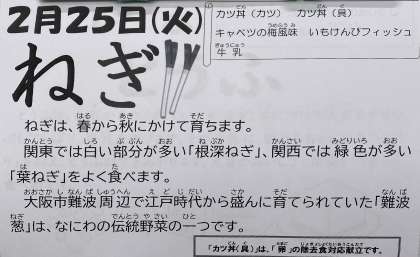 2月25日(火)
カツ丼(カツ) カツ丼(具)
キャベツの梅風味 いもけんぴフィッシュ
牛乳
ねぎ
ねぎは、春から秋にかけて育ちます。
関東では白い部分が多い「根深ねぎ」、関西では緑色が多い
「葉ねぎ」をよく食べます。
大阪市難波周辺で江戸時代から盛んに育てられていた「難波
葱」は、なにわの伝統野菜の一つです。
「カツ丼(具)」は、「卵」の除去食対応献立です。